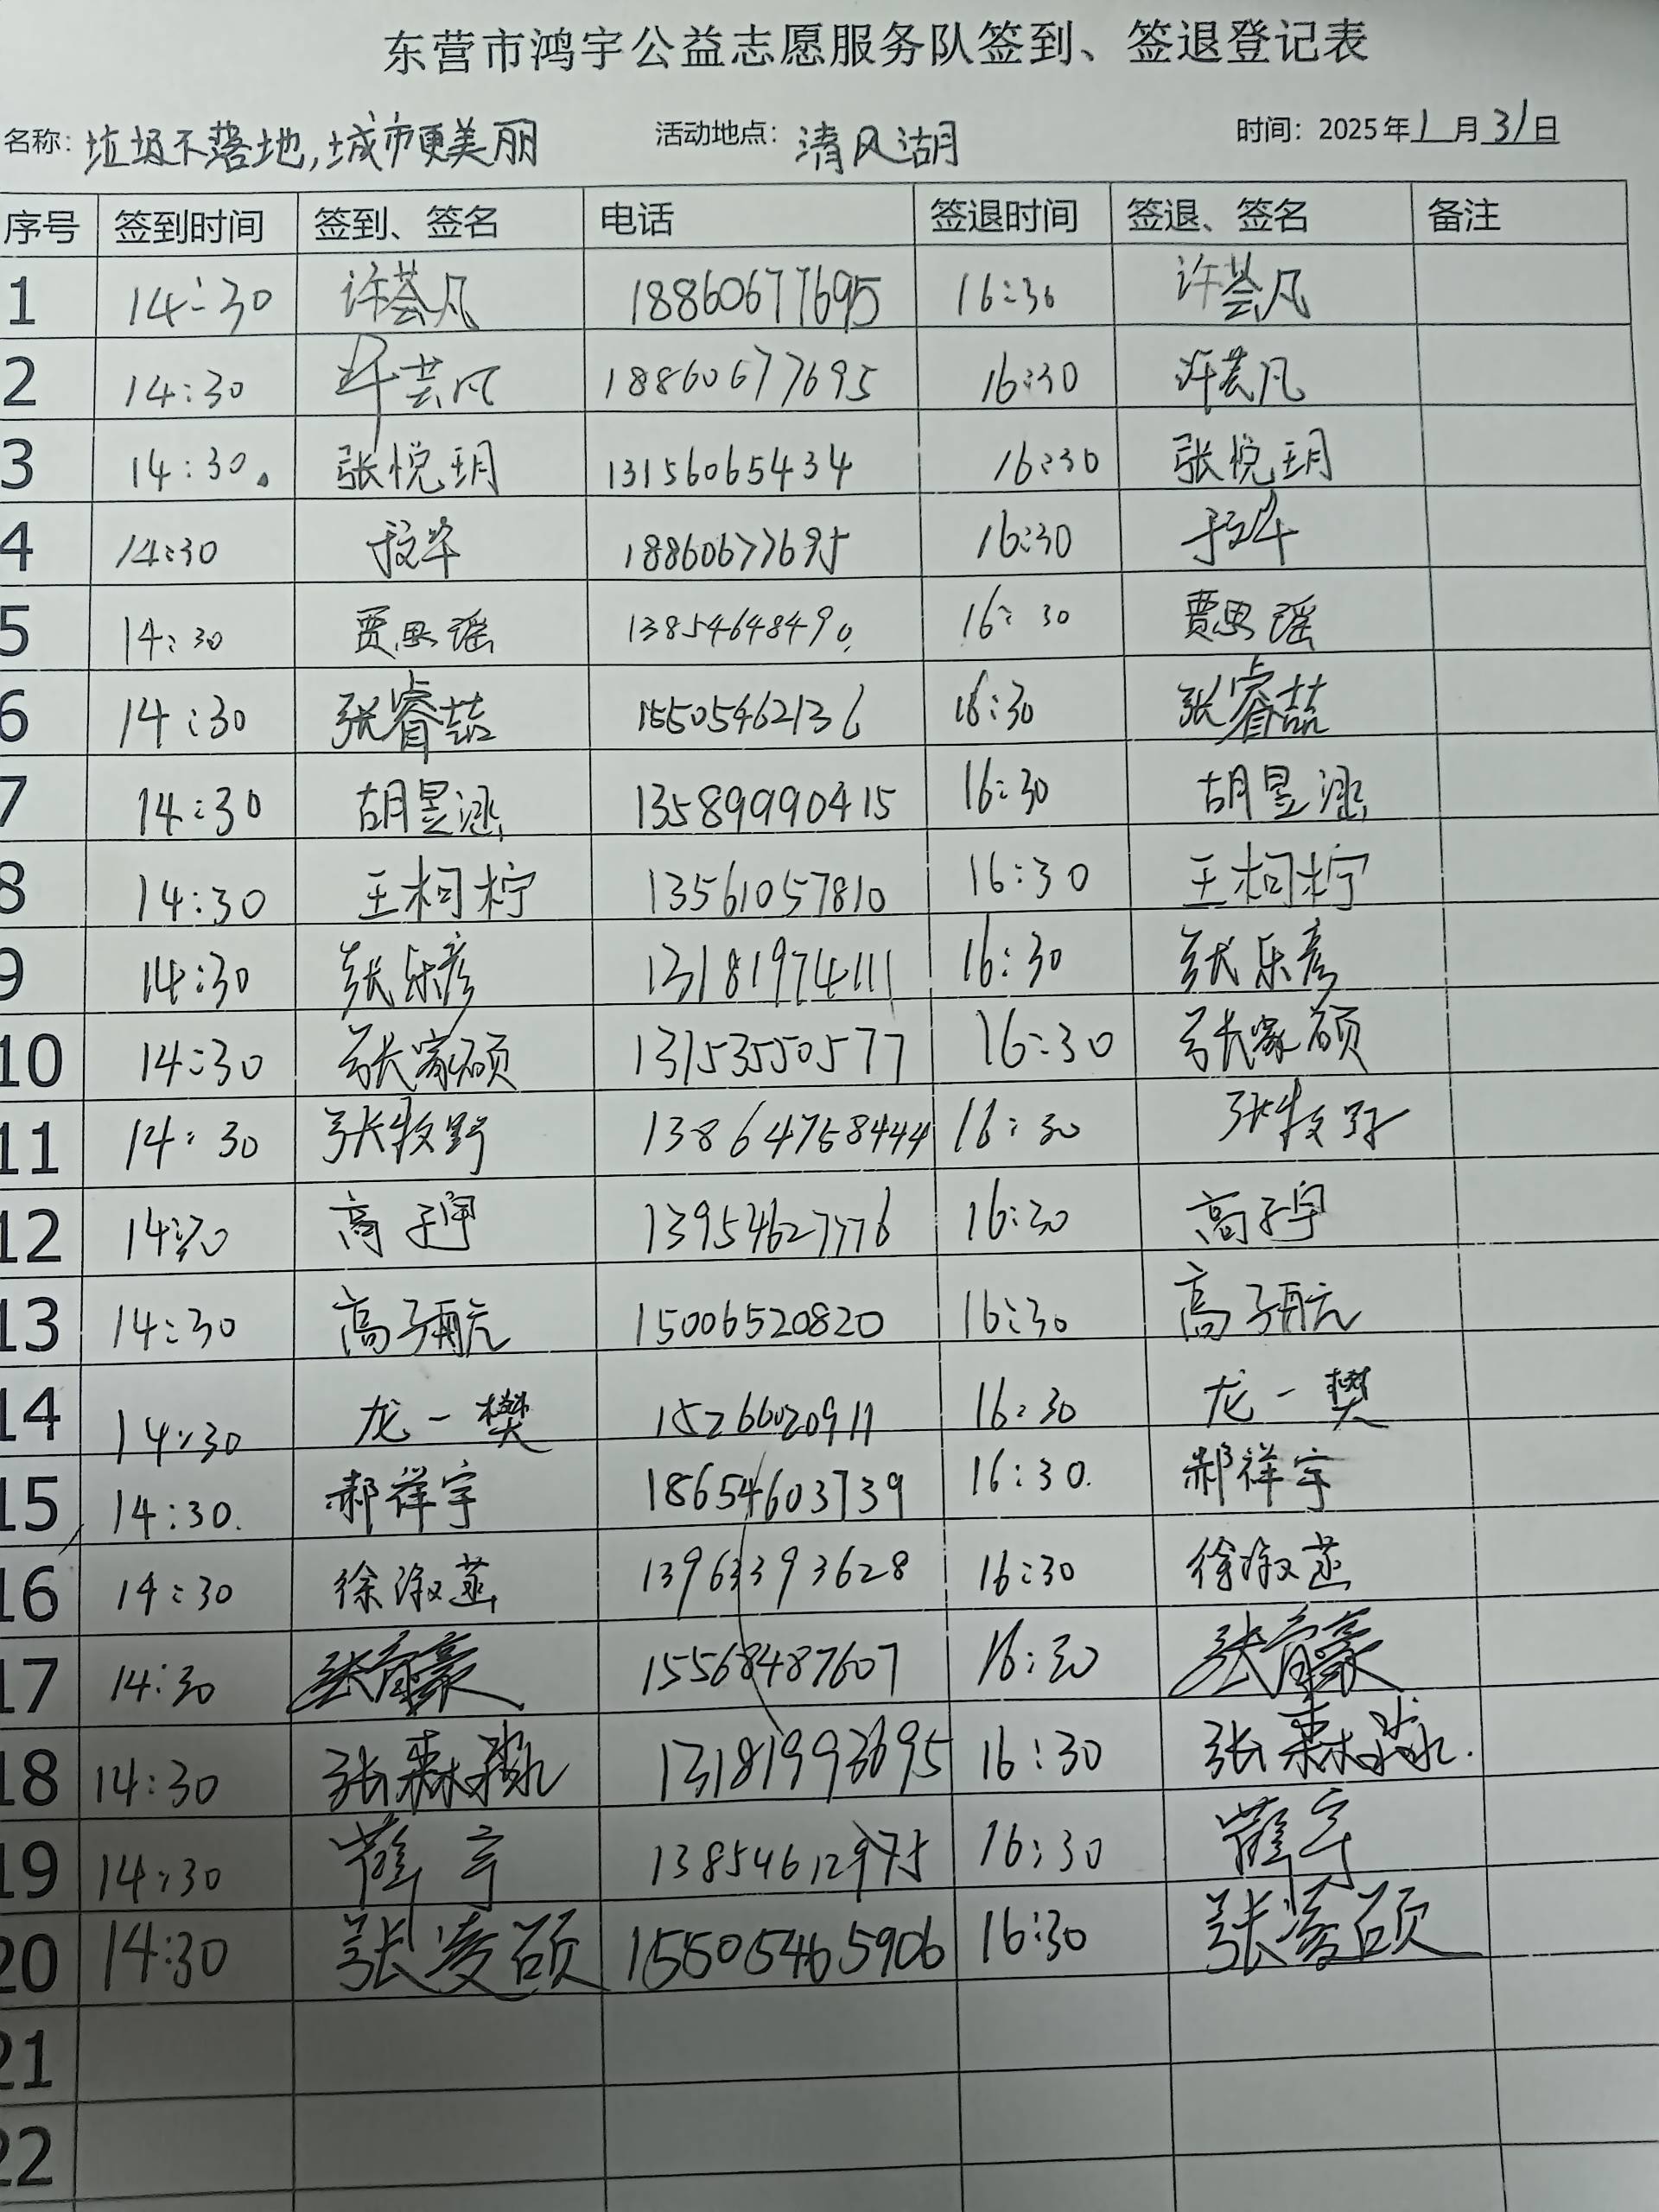 东营市鸿宇公益志愿服务队签到、签退登记表
名称：垃圾不落地,城市更美丽 活动地点：清风湖 时间：2025年1月31日
序号 签到时间 签到、签名 电话 签退时间 签退、签名 备注
1 14:30 许荟凡 18860677695 16:30 许荟凡
2 14:30 许芸凡 18860677695 16:30 许芸凡
3 14:30. 张悦玥 13156065434 16:30 张悦玥
4 14:30 18860677695 16:30
5 14:30 贾思瑶 13854648490 16:30 贾思瑶
6 14:30 张睿喆 15505462136 16:30 张睿喆
7 14:30 胡昱涵 13589990415 16:30 胡昱涵
8 14:30 王柯柠 13561057810 16:30 王柯柠
9 14:30 张乐彦 13181974111 16:30 张乐彦
10 14:30 张家硕 13153550577 16:30 张家硕
11 14:30 张牧野 13864758444 16:30 张牧野
12 14:30 高子宇 13954627776 16:30 高子宇
13 14:30 高子航 15006520820 16:30 高子航
14 14:30 龙一樊 15266020911 16:30 龙一樊
15 14:30. 郝祥宇 18654603739 16:30. 郝祥宇
16 14:30 徐淑菡 13963393628 16:30 徐淑菡
17 14:30 15568487607 16:30
18 14:30 张森淼 13181993695 16:30 张森淼.
19 14:30 宇 13854612975 16:30 宇
20 14:30 张凌硕 15505465906 16:30 张凌硕
21
22